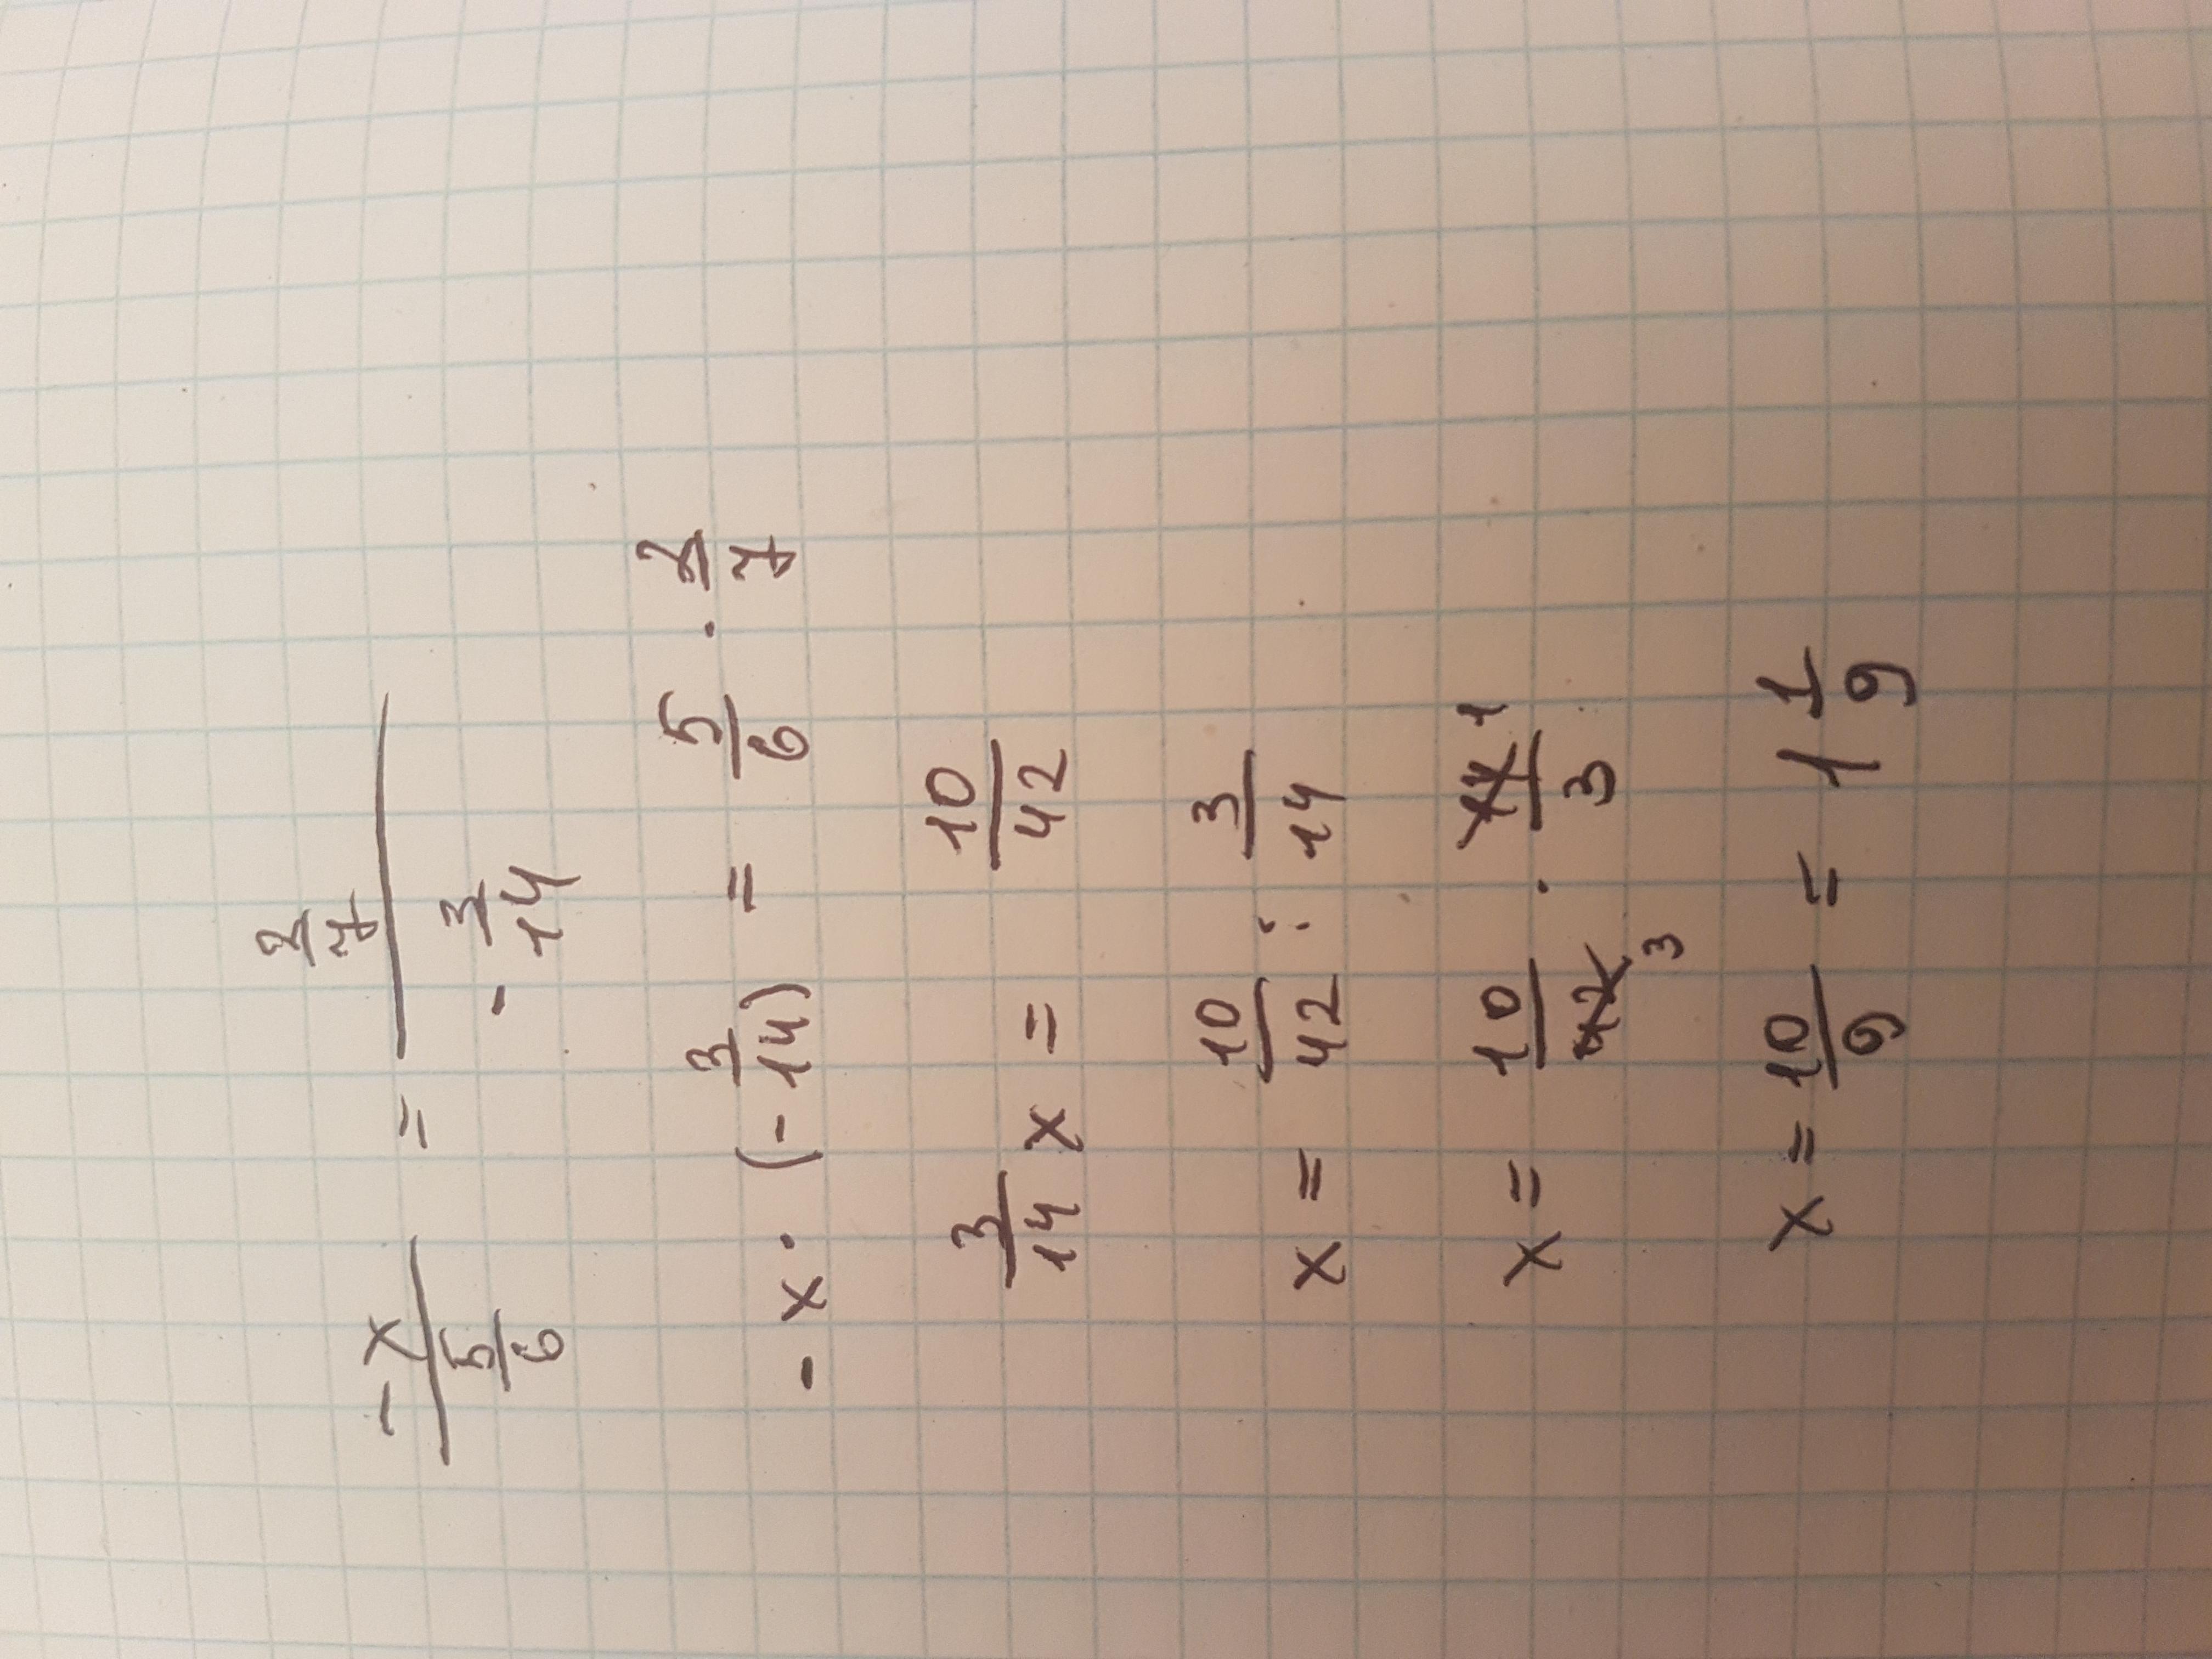 -x / 5/6 = 2/7 / - 3/14
-x · (- 3/14) = 5/6 · 2/7
3/14 x = 10/42
x = 10/42 : 3/14
x = 10/42 3 · 14 1/3
x = 10/9 = 1 1/9